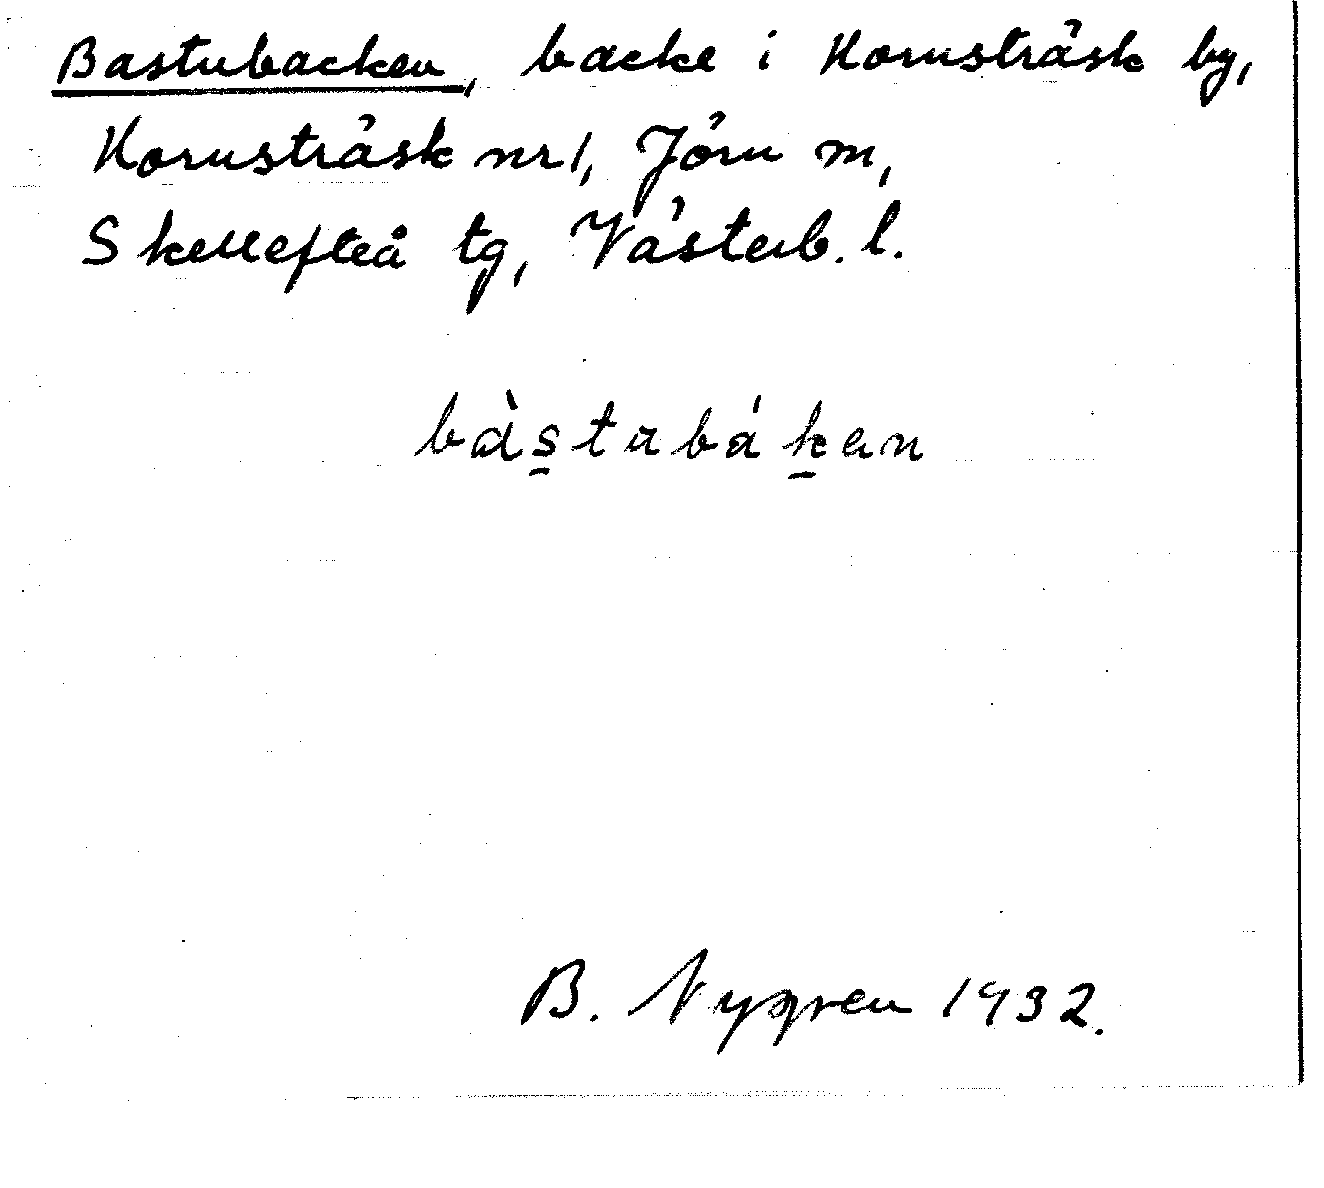 Bastubacken, backe i Kornsträsk by,
Kornsträsk nr 1, Jörn m,
Skellefteå tg, Västerb. l.
bàs̱tabáḵen
B. Nygren 1932.